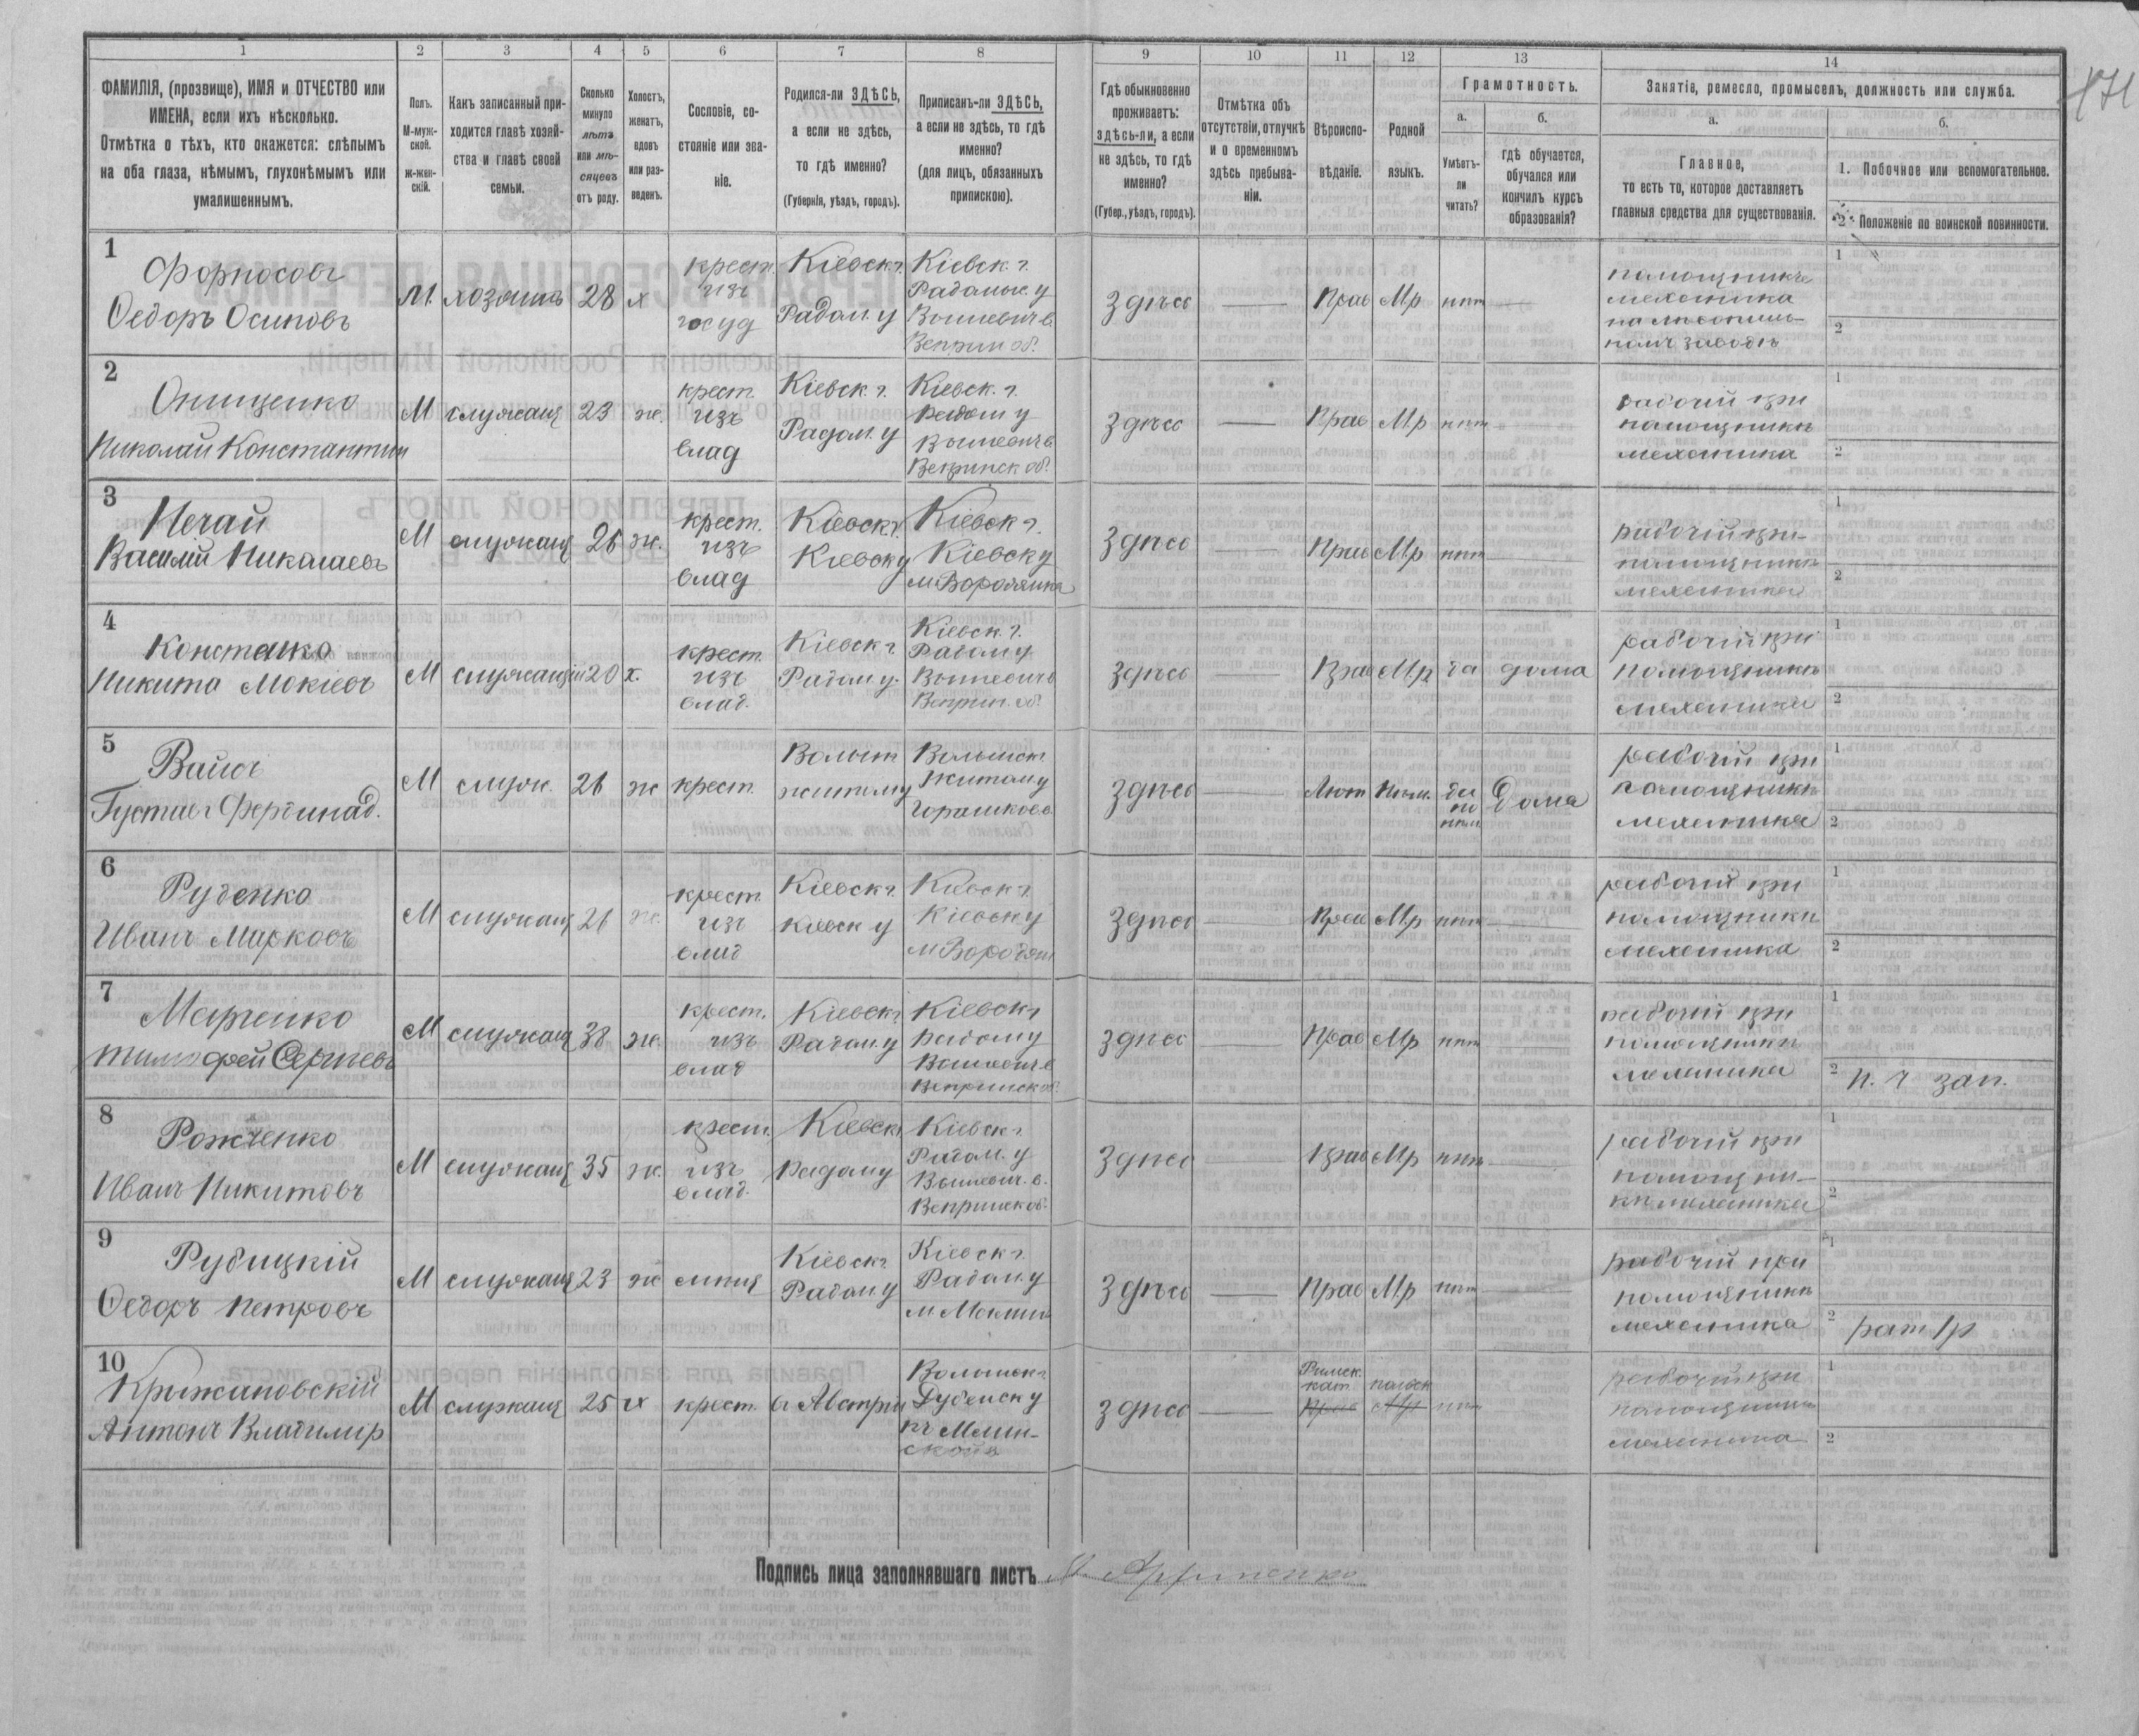 1 2 3 4 5 6 7 8 9 10 11 12 13 14
ФАМИЛІЯ, (прозвище), ИМЯ и ОТЧЕСТВО или
ИМЕНА, если ихъ нѣсколько.
Отмѣтка о тѣхъ, кто окажется: слѣпымъ
на оба глаза, нѣмымъ, глухонѣмымъ или
умалишеннымъ.
Полъ.
М-муж-
ской.
ж-жен-
скій.
Какъ записанный при-
ходится главѣ хозяй-
ства и главѣ своей
семьи.
Сколько
минуло
лѣтъ
или мѣ-
сяцевъ
отъ роду.
Холостъ,
женатъ,
вдовъ
или раз-
веденъ.
Сословіе, со-
стояніе или зва-
ніе.
Родился-ли ЗДѢСЬ,
а если не здѣсь,
то гдѣ именно?
(Губернія, уѣздъ, городъ).
Приписанъ-ли ЗДѢСЬ,
а если не здѣсь, то гдѣ
именно?
(для лицъ, обязанныхъ
припискою).
Гдѣ обыкновенно
проживаетъ:
здѣсь-ли, а если
не здѣсь, то гдѣ
именно?
(Губер., уѣздъ, городъ).
Отмѣтка объ
отсутствіи, отлучкѣ
и о временномъ
здѣсь пребыва-
ніи.
Вѣроиспо-
вѣданіе.
Родной
языкъ.
Грамотность.
а.
Умѣетъ-
ли
читать?
б.
гдѣ обучается,
обучался или
кончилъ курсъ
образованія?
Занятіе, ремесло, промыселъ, должность или служба.
а.
Главное,
то есть то, которое доставляетъ
главныя средства для существованія.
б.
1. Побочное или вспомогательное.
2. Положеніе по воинской повинности.
1
Форпосовъ
Ѳедоръ Осиповъ
М. хозяинъ 28 х
крест.
изъ
госуд
Кіевск г.
Радом. у
Кіевск. г.
Радомыс. у
Вышевич в.
Веприн об.
здѣсь — Прав М.р нѣт —
помощникъ
механика
на лѣсопиль-
номъ заводѣ
1
2
2
Онищенко
Николай Константин
М служащ 23 ж.
крест
изъ
влад
Кіевск. г.
Радом. у
Кіевск. г.
Радом у
Вышевич в.
Вепринск об.
здѣсь — Прав М.р нѣт —
рабочій при
помощникѣ
механика
1
2
3
Нечай
Василій Николаевъ
М служащ 26 ж.
крест.
изъ
влад
Кіевск г.
Кіевск у
Кіевск г.
Кіевск у
м Бородянка
здѣсь — Прав М.р нѣт —
рабочій при-
помощникѣ
механика
1
2
4
Костенко
Никита Мокіевъ
М служащій 20 х.
крест
изъ
влад.
Кіевск г
Радом. у.
Кіевск. г.
Радом у
Вышевич в
Веприн. об.
здѣсь Прав М.р да дома
рабочій при
помощникѣ
механика
1
2
5
Густав Фердинад.
М служ. 26 ж крест.
Волын
житом у
Волынск г.
Житом. у
Горошков в.
здѣсь — Лют Нѣм. да
по
нѣм
Дома
рабочій при
помощникѣ
механика
1
2
6
Руденко
Иванъ Марковъ
М служащ 26 ж.
крест
изъ
влад
Кіевск г
Кіевск у
Кіевск г.
Кіевск у
м Бородян
здѣсь — Прав М.р нѣт —
рабочій при
помощникѣ
механика
1
2
7
Марченко
Тимофей Сергѣевъ
М служащ 38 ж.
крест.
изъ
влад
Кіевск г.
Радом. у
Кіевск г
Радом у
Вышевич в
Вепринск об.
здѣсь — Прав М.р нѣт —
рабочій при
помощникѣ
механика
1
2 н. ч зап.
8
Рожченко
Иванъ Никитовъ
М служащ 35 ж.
крест.
изъ
влад.
Кіевск г
Радом у
Кіевск г.
Радом. у
Вышевич. в.
Вепринск об.
здѣсь — Прав М.р нѣт —
рабочій при
помощни-
кѣ механика
1
2
9
Рубицкій
Ѳедоръ Петровъ
М служащ 23 ж мѣщ
Кіевск г.
Радом. у
Кіевск г.
Радом. у
здѣсь — Прав М.р нѣт —
рабочій при
помощникѣ
механика
1
2 рат 1 р
10
Крыжановскій
Антонъ Владимир
М служащ 25 х крест. в Австріи
Волынск г.
Дубенск у
здѣсь —
Римск.
кат. польск
Прав М.р нѣт
рабочій при
помощникѣ
механика
1
2
Подпись лица заполнявшаго листъ